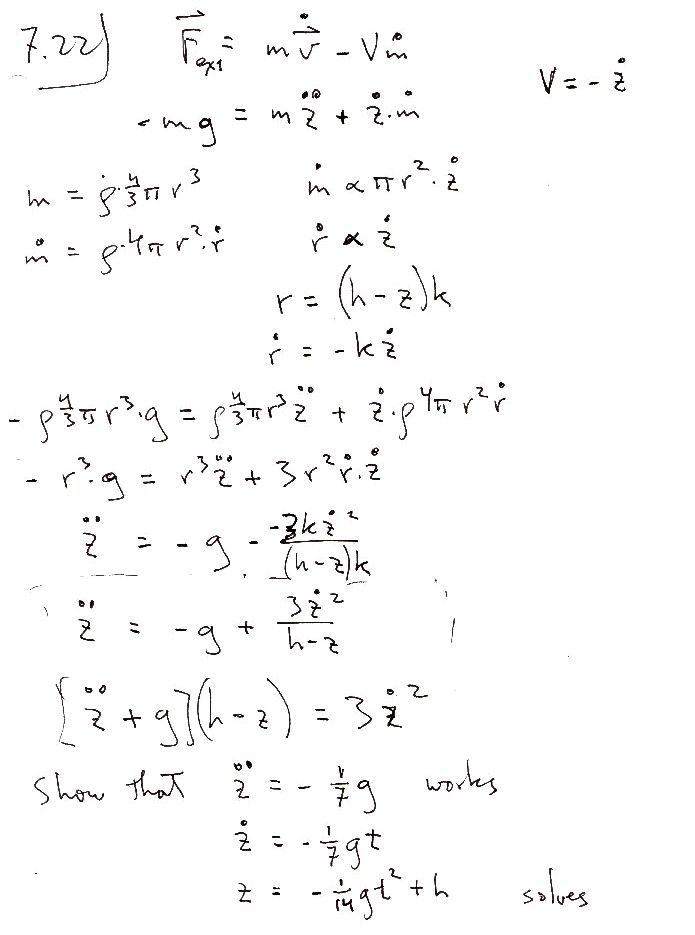 7.22) F⃗ext = m v⃗̇ - Vṁ
V = - ż
- mg = m z̈ + ż·ṁ
m = ρ·4/3 π r³    ṁ ∝ π r²·ż
ṁ = ρ·4π r²·ṙ    ṙ ∝ ż
r = (h - z)k
ṙ = - k ż
- ρ 4/3 π r³·g = ρ 4/3 π r³ z̈ + ż·ρ 4π r² ṙ
- r³·g = r³ z̈ + 3 r² ṙ·ż
z̈ = - g - -3k ż² / (h-z)k
z̈ = - g + 3 ż² / h-z
[z̈ + g](h - z) = 3 ż²
Show that z̈ = - 1/7 g works
ż = - 1/7 g t
z = - 1/14 g t² + h solves